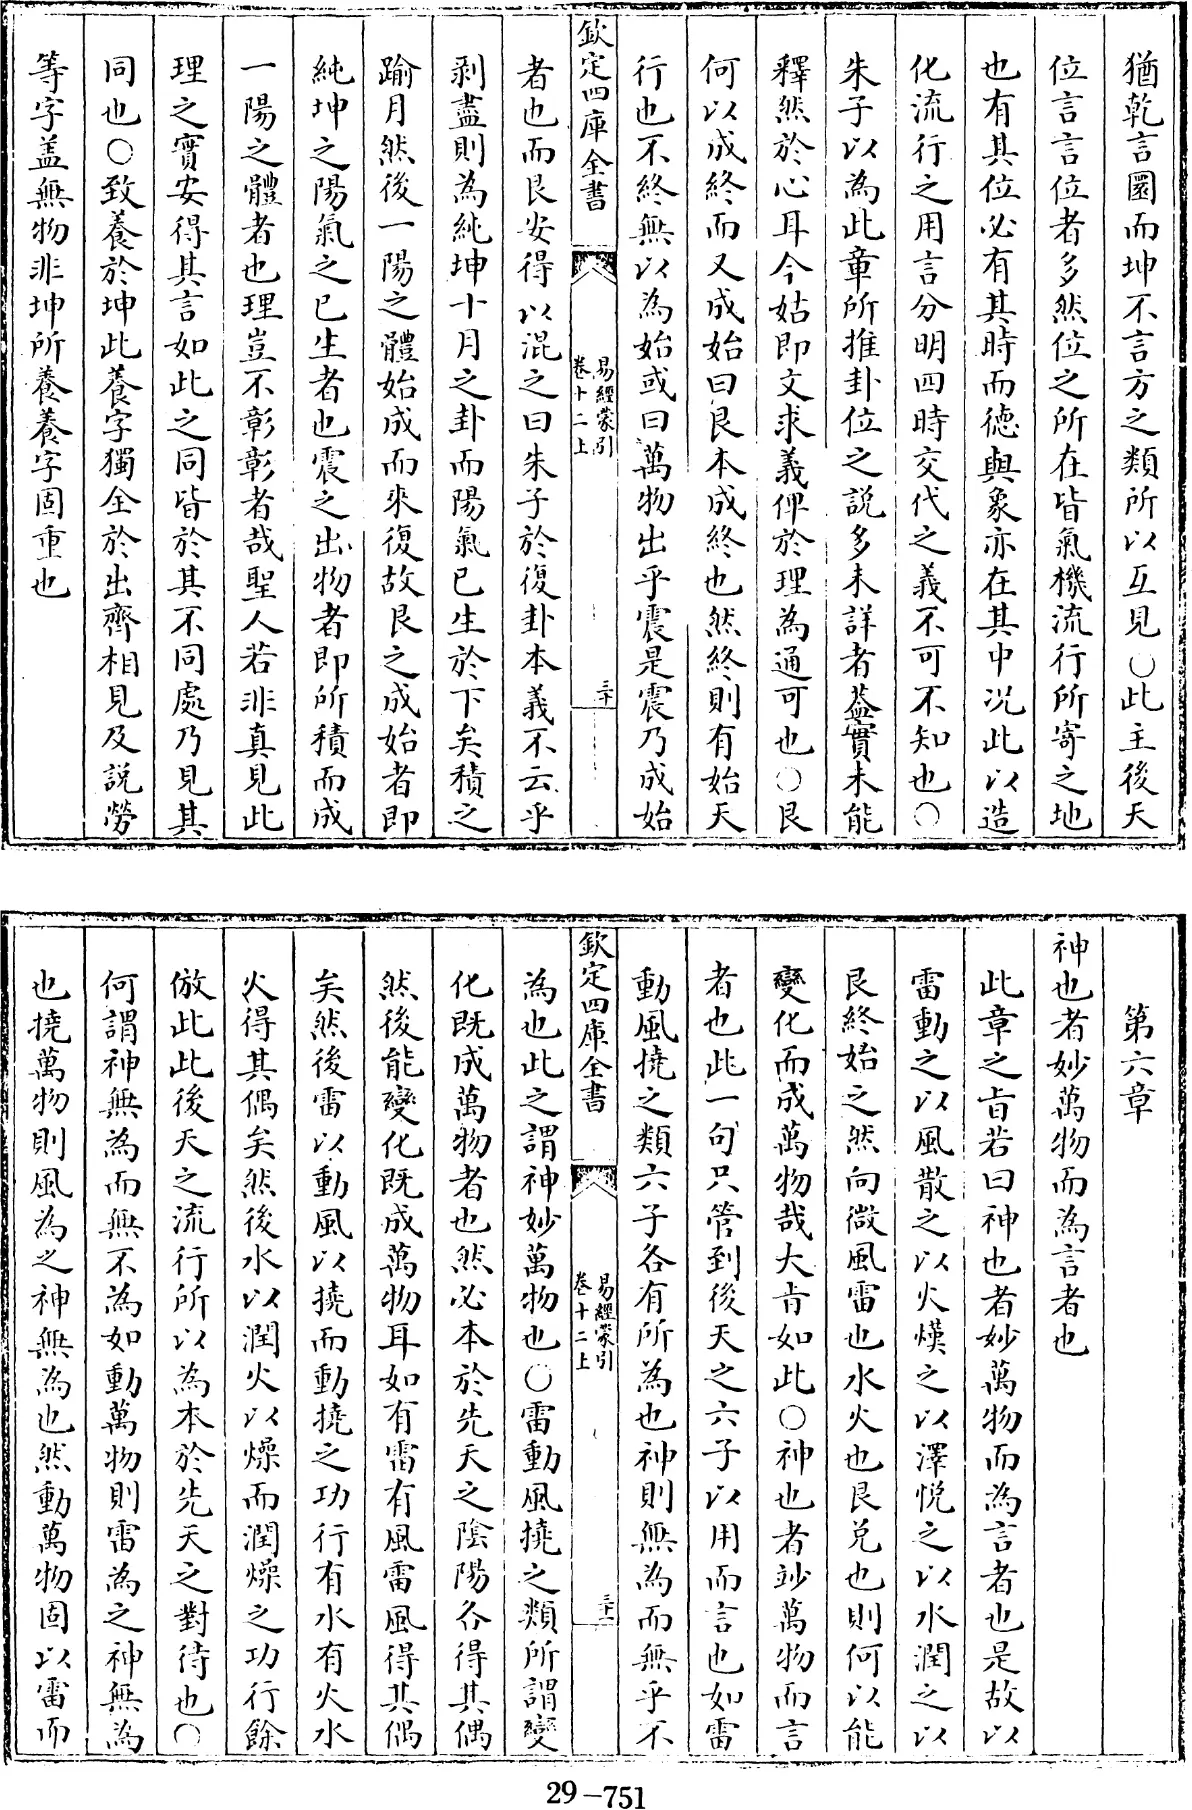 猶乾言圜而坤不言方之類所以互見○此主後天
位言言位者多然位之所在皆氣機流行所寄之地
也有其位必有其時而德與象亦在其中况此以造
化流行之用言分明四時交代之義不可不知也○
朱子以為此章所推卦位之說多未詳者葢實未能
釋然於心耳今姑即文求義俾於理為通可也○艮
何以成終而又成始曰艮本成終也然終則有始天
行也不終無以為始或曰萬物出乎震是震乃成始
欽定四庫全書
易經蒙引
卷十二上
三十
者也而艮安得以混之曰朱子於復卦本義不云乎
剥盡則為純坤十月之卦而陽氣已生於下矣積之
踰月然後一陽之體始成而來復故艮之成始者即
純坤之陽氣之已生者也震之出物者即所積而成
一陽之體者也理豈不彰彰者哉聖人若非真見此
理之實安得其言如此之同皆於其不同處乃見其
同也○致養於坤此養字獨全於出齊相見及説勞
等字盖無物非坤所養養字固重也
第六章
神也者妙萬物而為言者也
此章之旨若曰神也者妙萬物而為言者也是故以
雷動之以風散之以火熯之以澤悅之以水潤之以
艮終始之然向微風雷也水火也艮兌也則何以能
變化而成萬物哉大肯如此○神也者玅萬物而言
者也此一句只管到後天之六子以用而言也如雷
動風撓之類六子各有所為也神則無為而無乎不
欽定四庫全書
易經蒙引
卷十二上
三十一
為也此之謂神妙萬物也○雷動風撓之類所謂變
化既成萬物者也然必本於先天之陰陽各得其偶
然後能變化既成萬物耳如有雷有風雷風得其偶
矣然後雷以動風以撓而動撓之功行有水有火水
火得其偶矣然後水以潤火以燥而潤燥之功行餘
倣此此後天之流行所以為本於先天之對待也○
何謂神無為而無不為如動萬物則雷為之神無為
也撓萬物則風為之神無為也然動萬物固以雷而
29-751